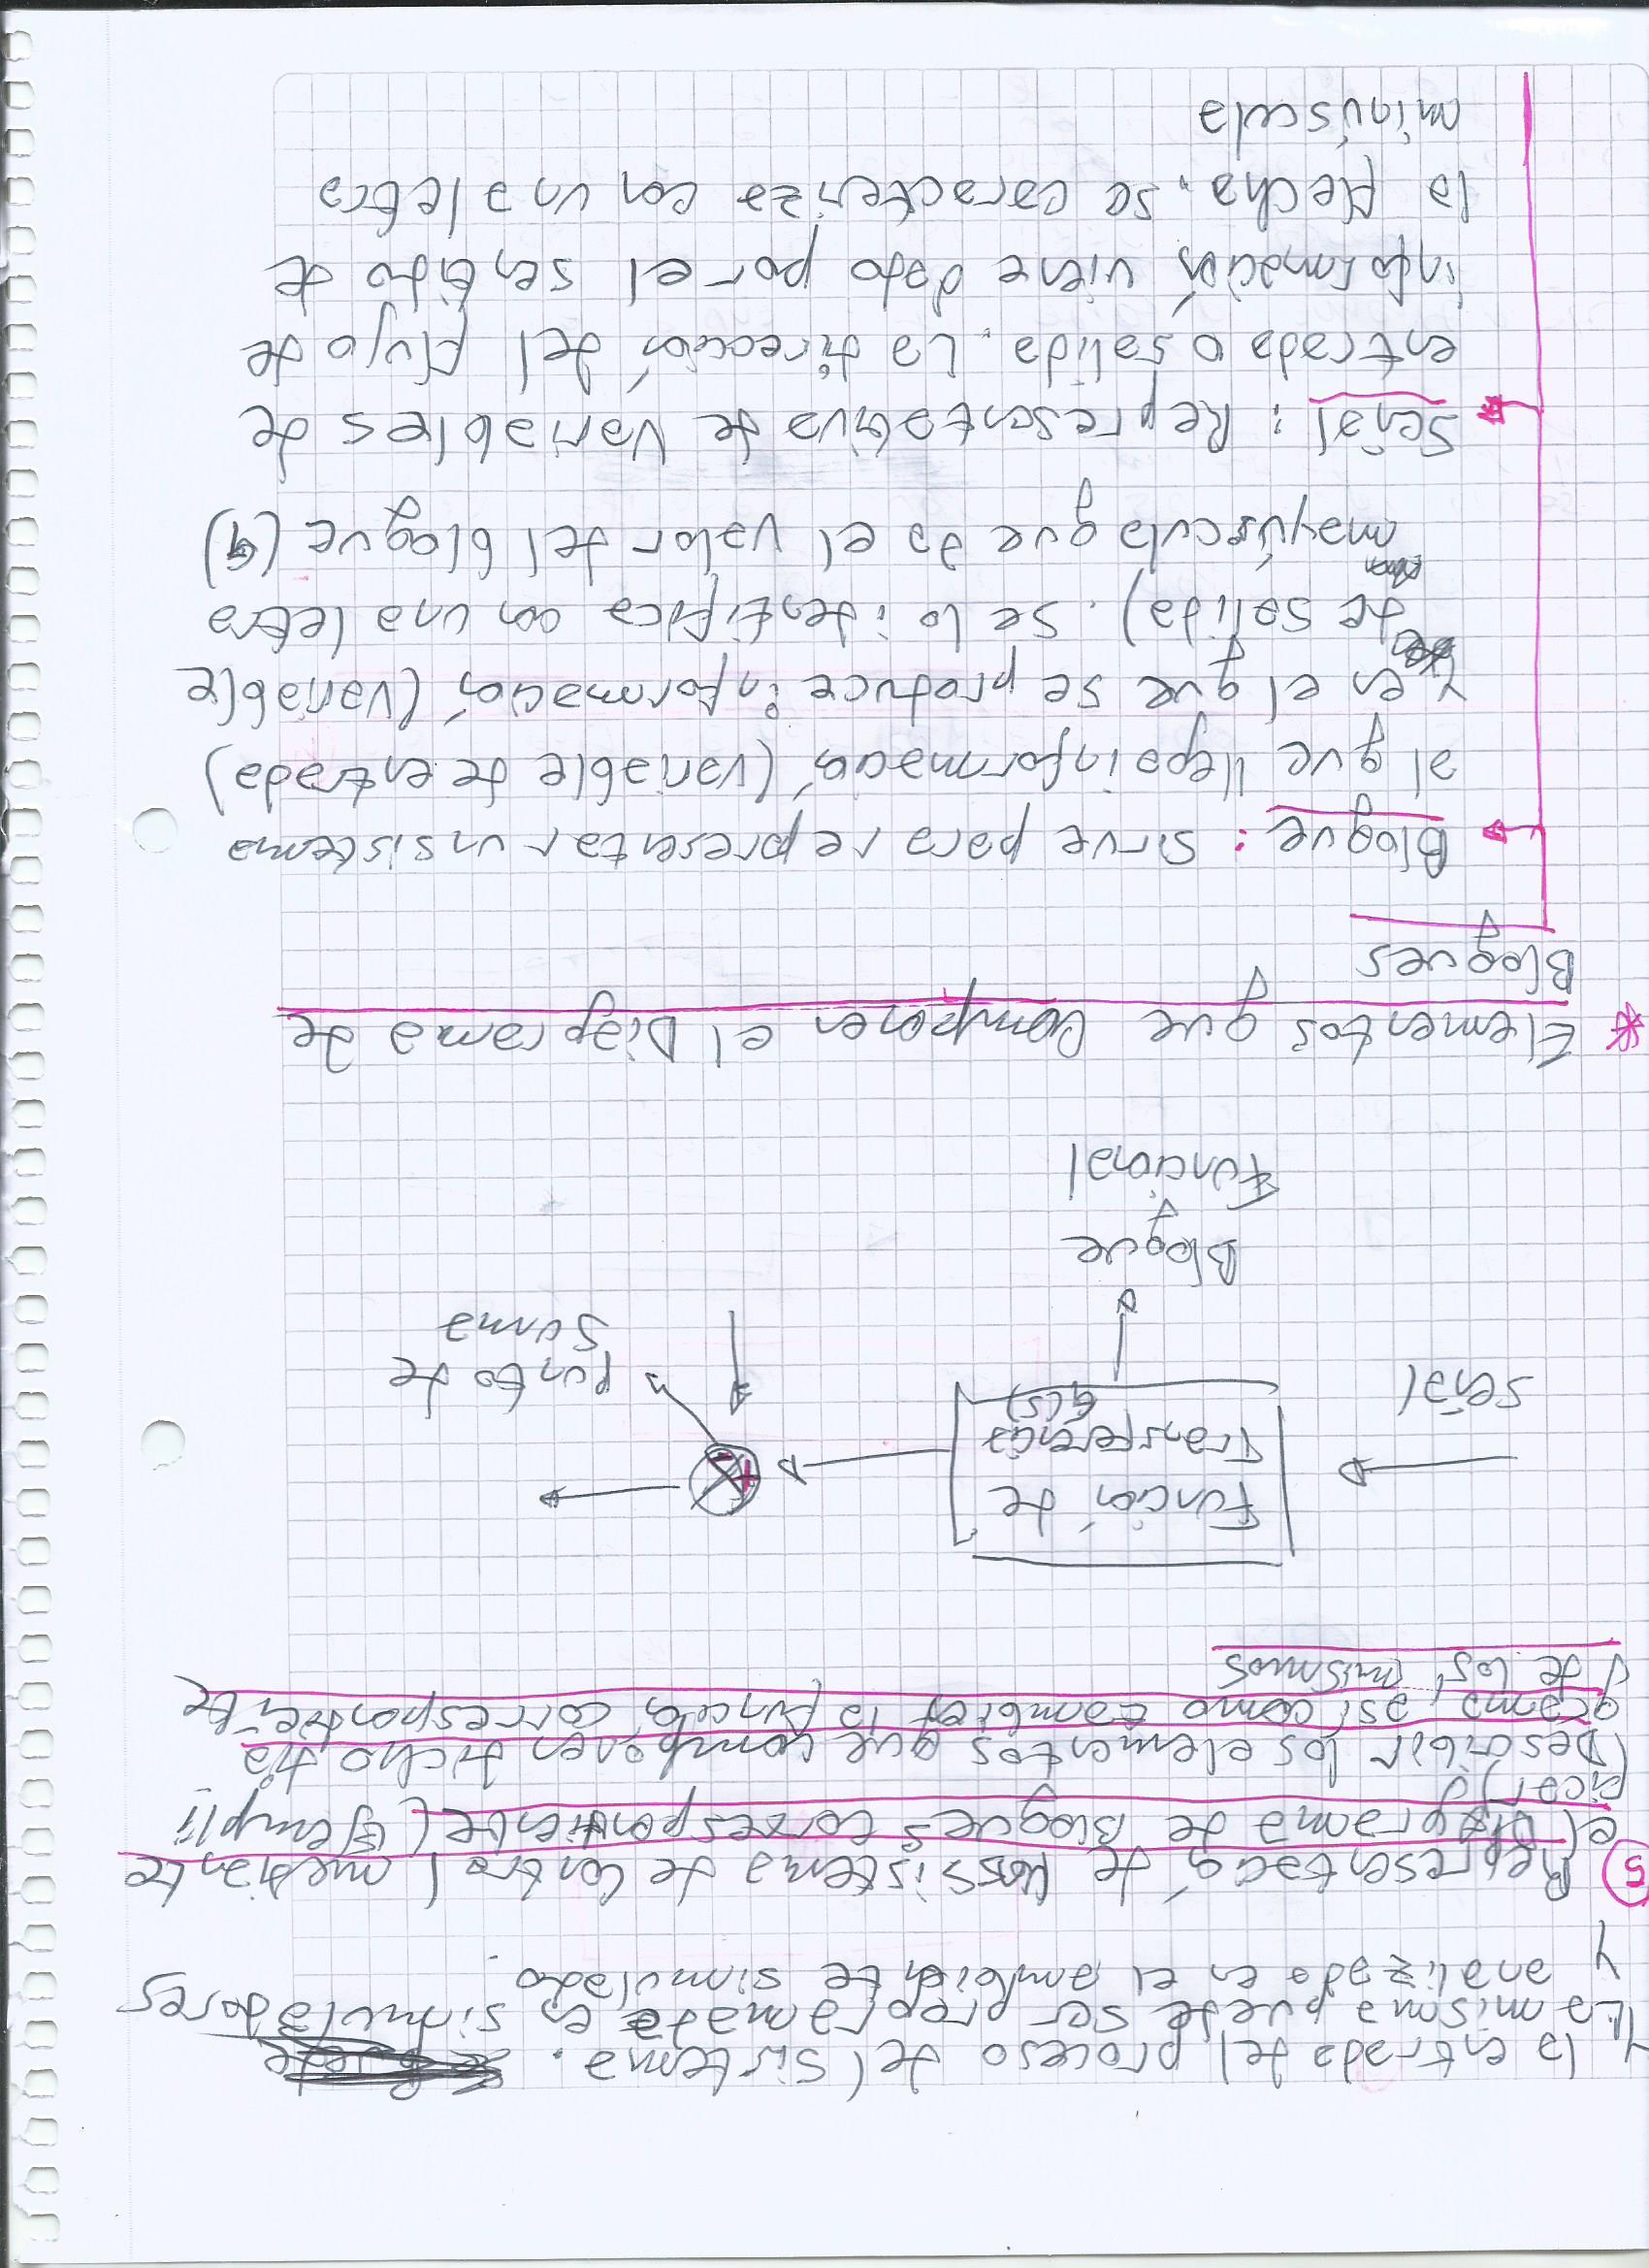 y la entrada del proceso del sistema.
La misma puede ser programada en simuladores
y analizado en el ambiente simulado.
5 Representación de sistema de Control mediante
el Diagrama de Bloques correspondiente (Ejempli
ficar)
Describir los elementos que componen dicho dia
grama, así como también la función correspondiente
de los mismos
Función de
Transferencia
G(S)
señal
+
-
punto de
suma
Bloque
Funcional
* Elementos que componen el Diagrama de
Bloques
Bloque: sirve para representar un sistema
al que llega información (variable de entrada)
y en el que se produce información (variable
de salida). Se lo identifica con una letra
mayúscula que da el valor del bloque (G)
Señal: Representativa de Variables de
entrada o salida. La dirección del flujo de
información viene dato por el sentido de
la flecha. se caracteriza con una letra
minúscula